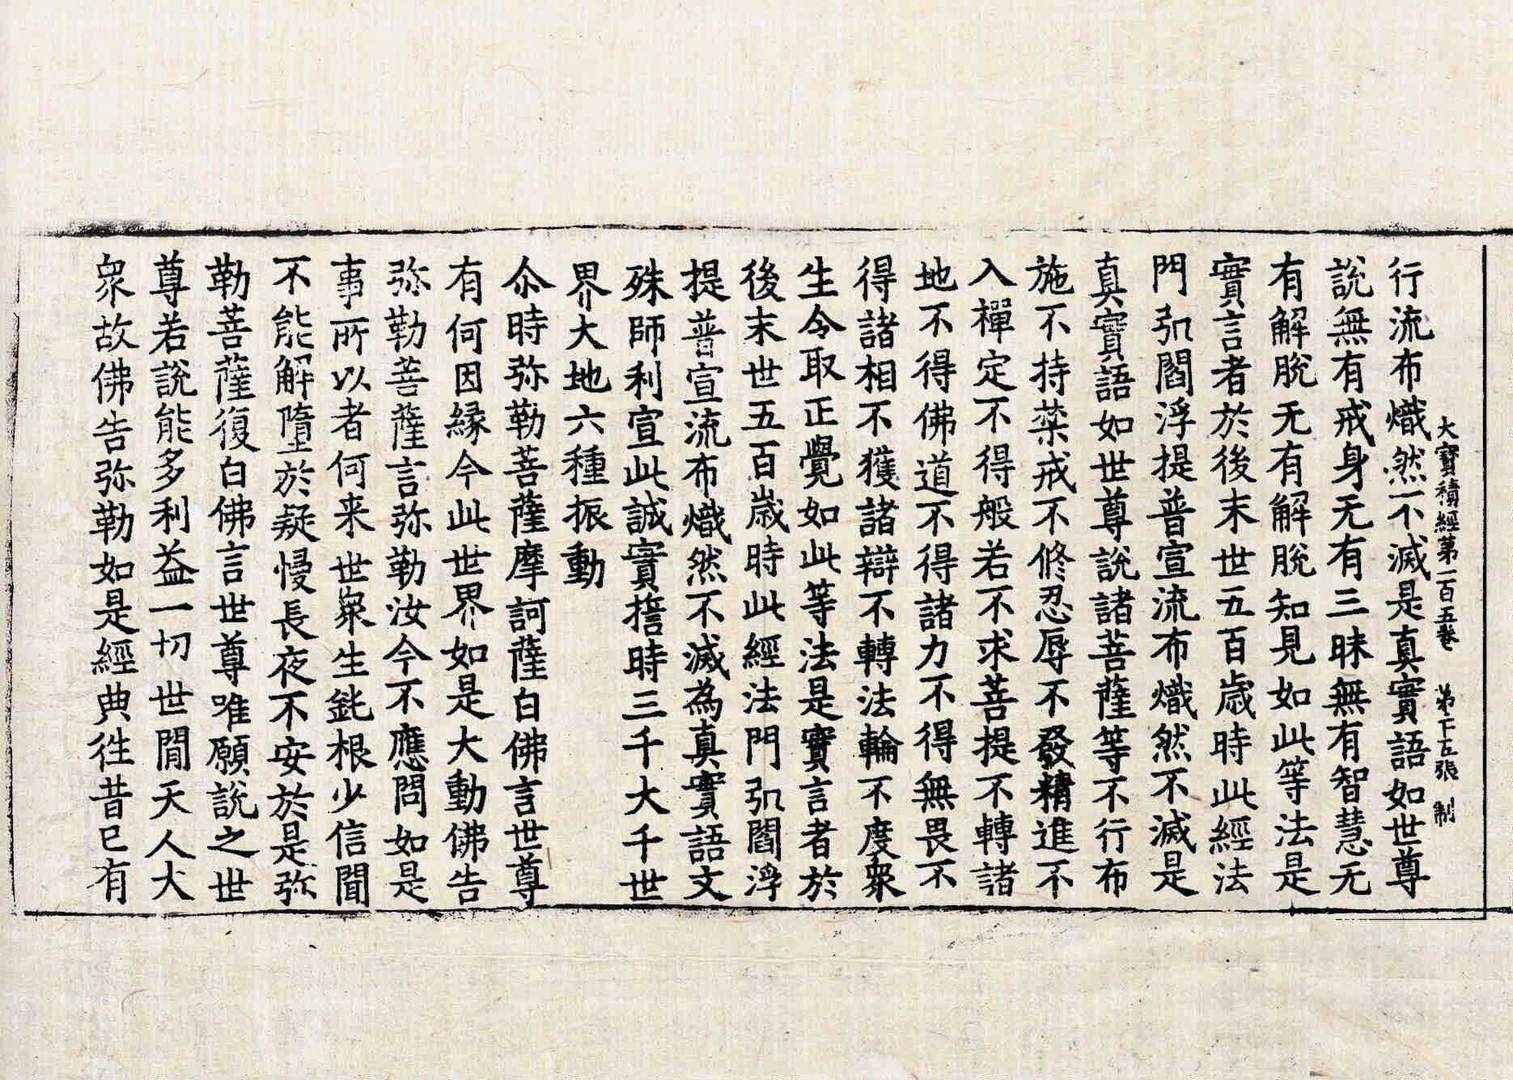 大寶積經第一百五卷 第十五張 制
行流布熾然不滅是真實語如世尊
說無有戒身无有三昧無有智慧无
有解脫无有解脫知見如此等法是
實言者於後末世五百歳時此經法
門於閻浮提普宣流布熾然不滅是
真實語如世尊說諸菩薩等不行布
施不持禁戒不修忍辱不發精進不
入禪定不得般若不求菩提不轉諸
地不得佛道不得諸力不得無畏不
得諸相不獲諸辯不轉法輪不度衆
生令取正覺如此等法是實言者於
後末世五百歳時此經法門於閻浮
提普宣流布熾然不滅為真實語文
殊師利宣此誠實誓時三千大千世
界大地六種振動
尒時弥勒菩薩摩訶薩白佛言世尊
有何因緣今此世界如是大動佛告
弥勒菩薩言弥勒汝今不應問如是
事所以者何来世衆生鈍根少信聞
不能解墮於疑慢長夜不安於是弥
勒菩薩復白佛言世尊唯願說之世
尊若說能多利益一切世間天人大
衆故佛告弥勒如是經典徃昔已有